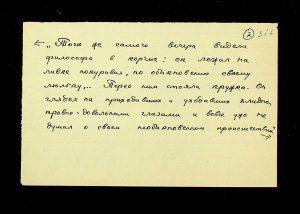 ② 312
← „Того же самого вечера видели
философа в корчме: он лежал на
лавке покуривая, по обыкновению своему
люльку,... Перед ним стояла кружка. Он
глядел на приходивших и уходивших хладно,
довольными глазами и вовсе уже не
думал о своем необыкновенном происшествии"
→